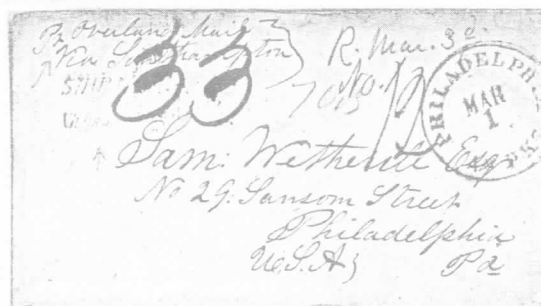 Pr Overland Mail
Via Southampton
R. Mar. 3d
SHIP
33
No. 12
PHILADELPHIA
MAR
1
Sam: Wetherill Esqr
No 29. Sansom Street
Philadelphia
U.S.A; Pa